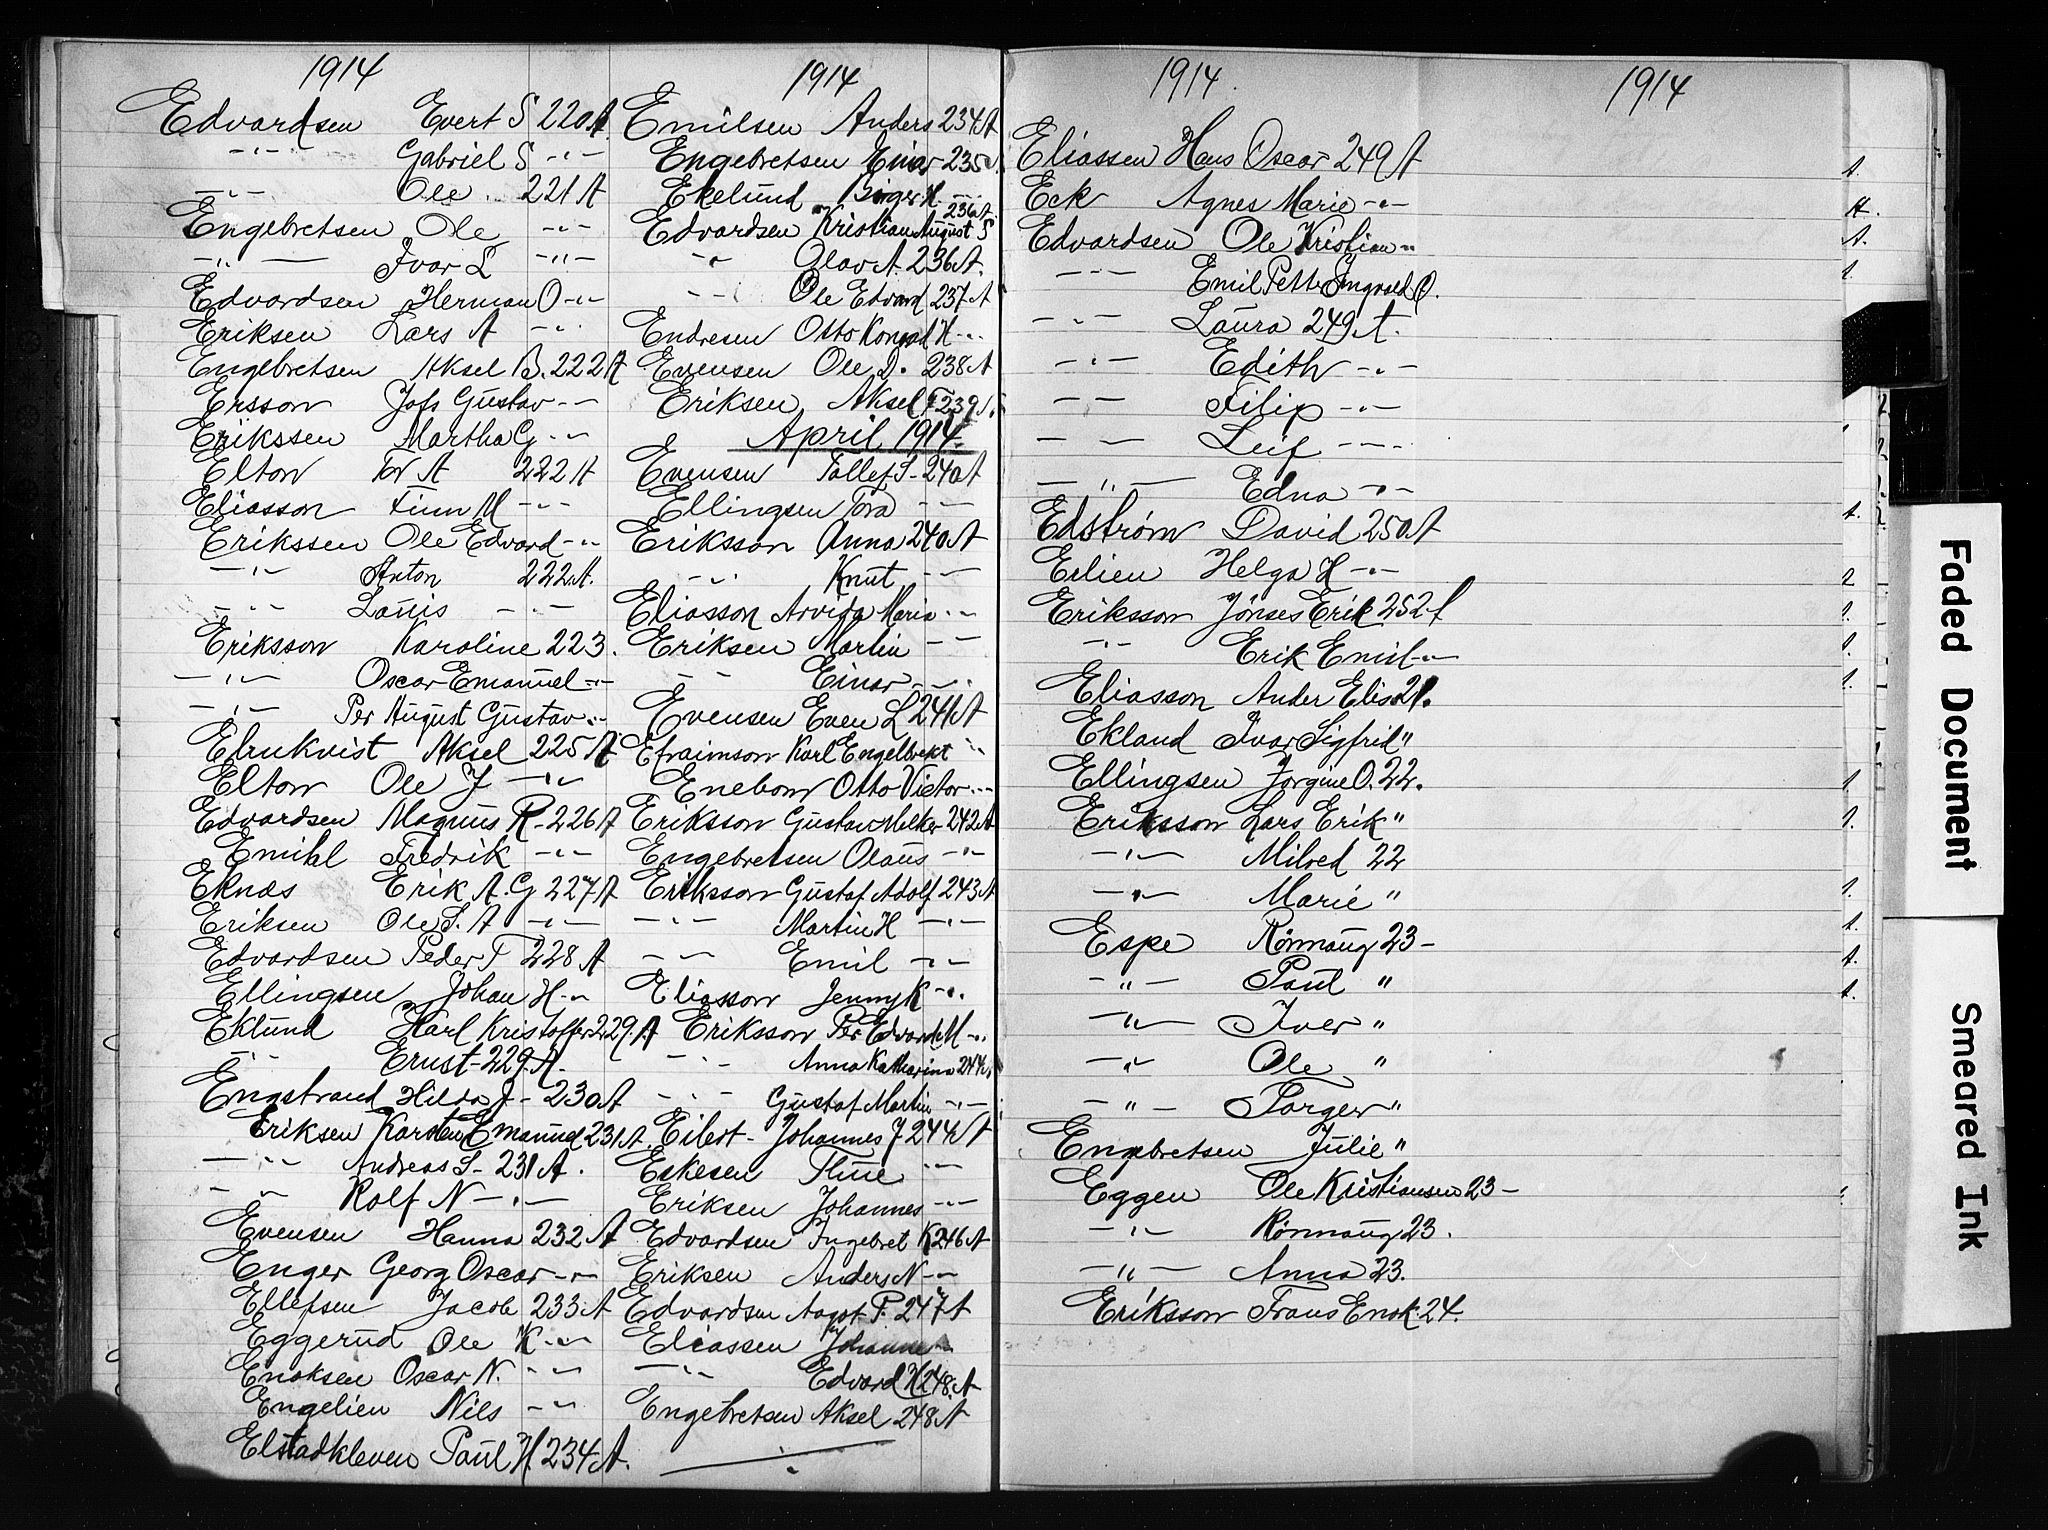 1914
Edvardsen Evert S 220 A
-"- Gabriel S -"-
-"- Ole 221 A
Engebretsen Ole -"-
-"- Ivar L -"-
Edvardsen Herman O -"-
Eriksen Lars A -"-
Engebretsen Aksel B. 222 A
Ersson Johs Gustav -"-
Erikssen Martha G -"-
Elton Tor A 222 A
Eliasson Finn M -"-
Erikssen Ole Edvard -"-
-"- Anton 222 A.
-"- Lauis -"-
Eriksson Karoline 223.
-"- Oscar Emanuel -"-
-"- Per August Gustav -"-
Elmkvist Aksel 225 A
Elton Ole J -"-
Edvardsen Magnus R - 226 A
Emihl Fredrik -"-
Eknæs Erik A. G 227 A
Eriksen Ole S. A -"-
Edvardsen Peder T 228 A
Ellingsen Johan H -"-
Eklund Karl Kristoffer 229. A
-"- Ernst - 229. A.
Engstrand Hilda J - 230 A
Eriksen Karsten Emanuel 231 A
-"- Andreas S - 231 A.
-"- Rolf N -"-
Evensen Hanna 232 A
Enger Georg Oscar -"-
Ellefsen Jacob 233 A
Eggerud Ole K -"-
Enoksen Oscar N. -"-
Engelien Nils -"-
Elstadkleven Paul H. 234 A.
1914
Emilsen Anders 234 A
Engebretsen Einar 235
Ekelund Birger H. -"-
Edvardsen Kristian August S 236 A.
-"- Olav A. 236 A.
-"- Ole Edvard 237 A
Endresen Otto Konrad H -"-
Evensen Ole D. 238 A
Eriksen Aksel F 239 A.
April 1914
Evensen Tollef S - 240 A
Ellingsen Tora -"-
Eriksson Anna 240 A
-"- Knut -"-
Eliasson Arvida Maria -"-
Eriksen Martin -"-
-"- Einar -"-
Evensen Even L 241 A
Efraimson Karl Engelbrekt -"-
Enebom Otto Victor -"-
Eriksson Gustav Melker 242 A
Engebretsen Olaus -"-
Eriksson Gustaf Adolf 243 A
-"- Martin H -"-
-"- Emil -"-
Eliasson Jenny K -"-
Eriksson Per Edvard M -"-
-"- Anna Katharina 244
-"- Gustaf Martin -"-
Eilert - Johannes J 244 A
Eskesen Thue -"-
Eriksen Johannes -"-
Edvardsen Ingebret K 246 A
Eriksen Anders N -"-
Edvardsen Aagot P. 247 A
Eliassen Johanne
-"- Edvard H 248. A
Engebretsen Aksel 248 A
1914
Eliassen Hans Oscar 249 A
Eck Agnes Marie -"-
Edvardsen Ole Kristian -"-
-"- Emil Petter Ingvald O.
-"- Laura 249 A.
-"- Edith -"-
-"- Filip -"-
-"- Leif -"-
-"- Edna -"-
Edström David 250 A
Erlien Helga H -"-
Eriksson Jönses Erik 252 A
-"- Erik Emil -"-
Eliasson Ander Elis 21.
Ekland Ivar Sigfrid "
Ellingsen Jorgine O. 22.
Eriksson Lars Erik "
-"- Milred 22
-"- Marie "
Espe Rønnaug 23 -
-"- Paul "
-"- Iver "
-"- Ole "
-"- Torger "
Engebretsen Julie "
Eggen Ole Kristiansen 23 -
-"- Rønnaug 23.
-"- Anna 23.
Eriksson Frans Enok. 24.
1914
Faded Document
Smeared Ink